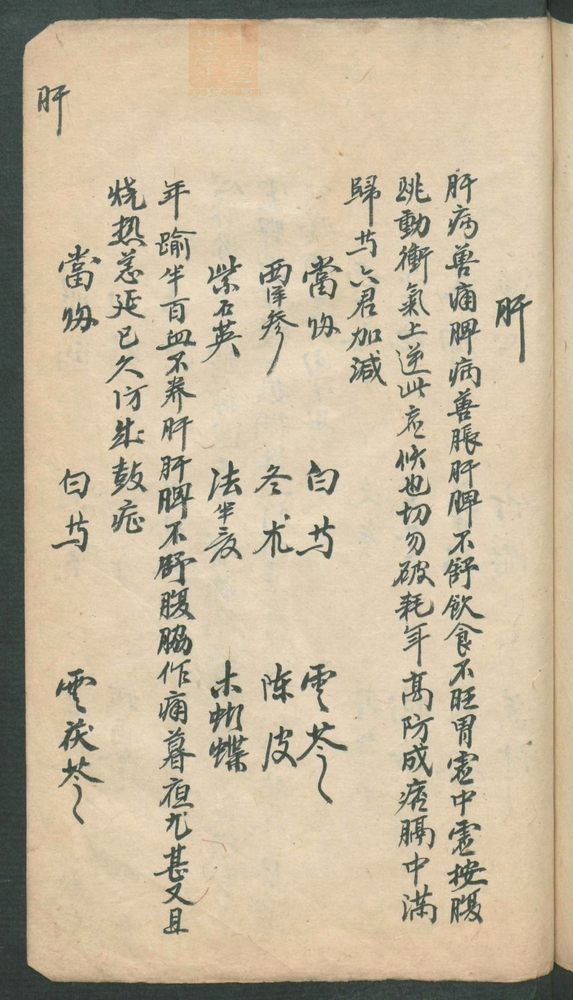 肝
肝病善痛脾病善脹肝脾不舒飲食不旺胃虛中虛按腹
跳動衝氣上逆此虛候也切勿破耗年高防成痞膈中滿
歸芍六君加減
當歸 白芍 雲苓
西洋參 冬朮 陳皮
紫石英 法半夏 木蝴蝶
年踰半百血不养肝肝脾不舒腹脇作痛暮夜尤甚又且
烧热恙延已久仿生鼓症
當歸 白芍 雲茯苓
肝